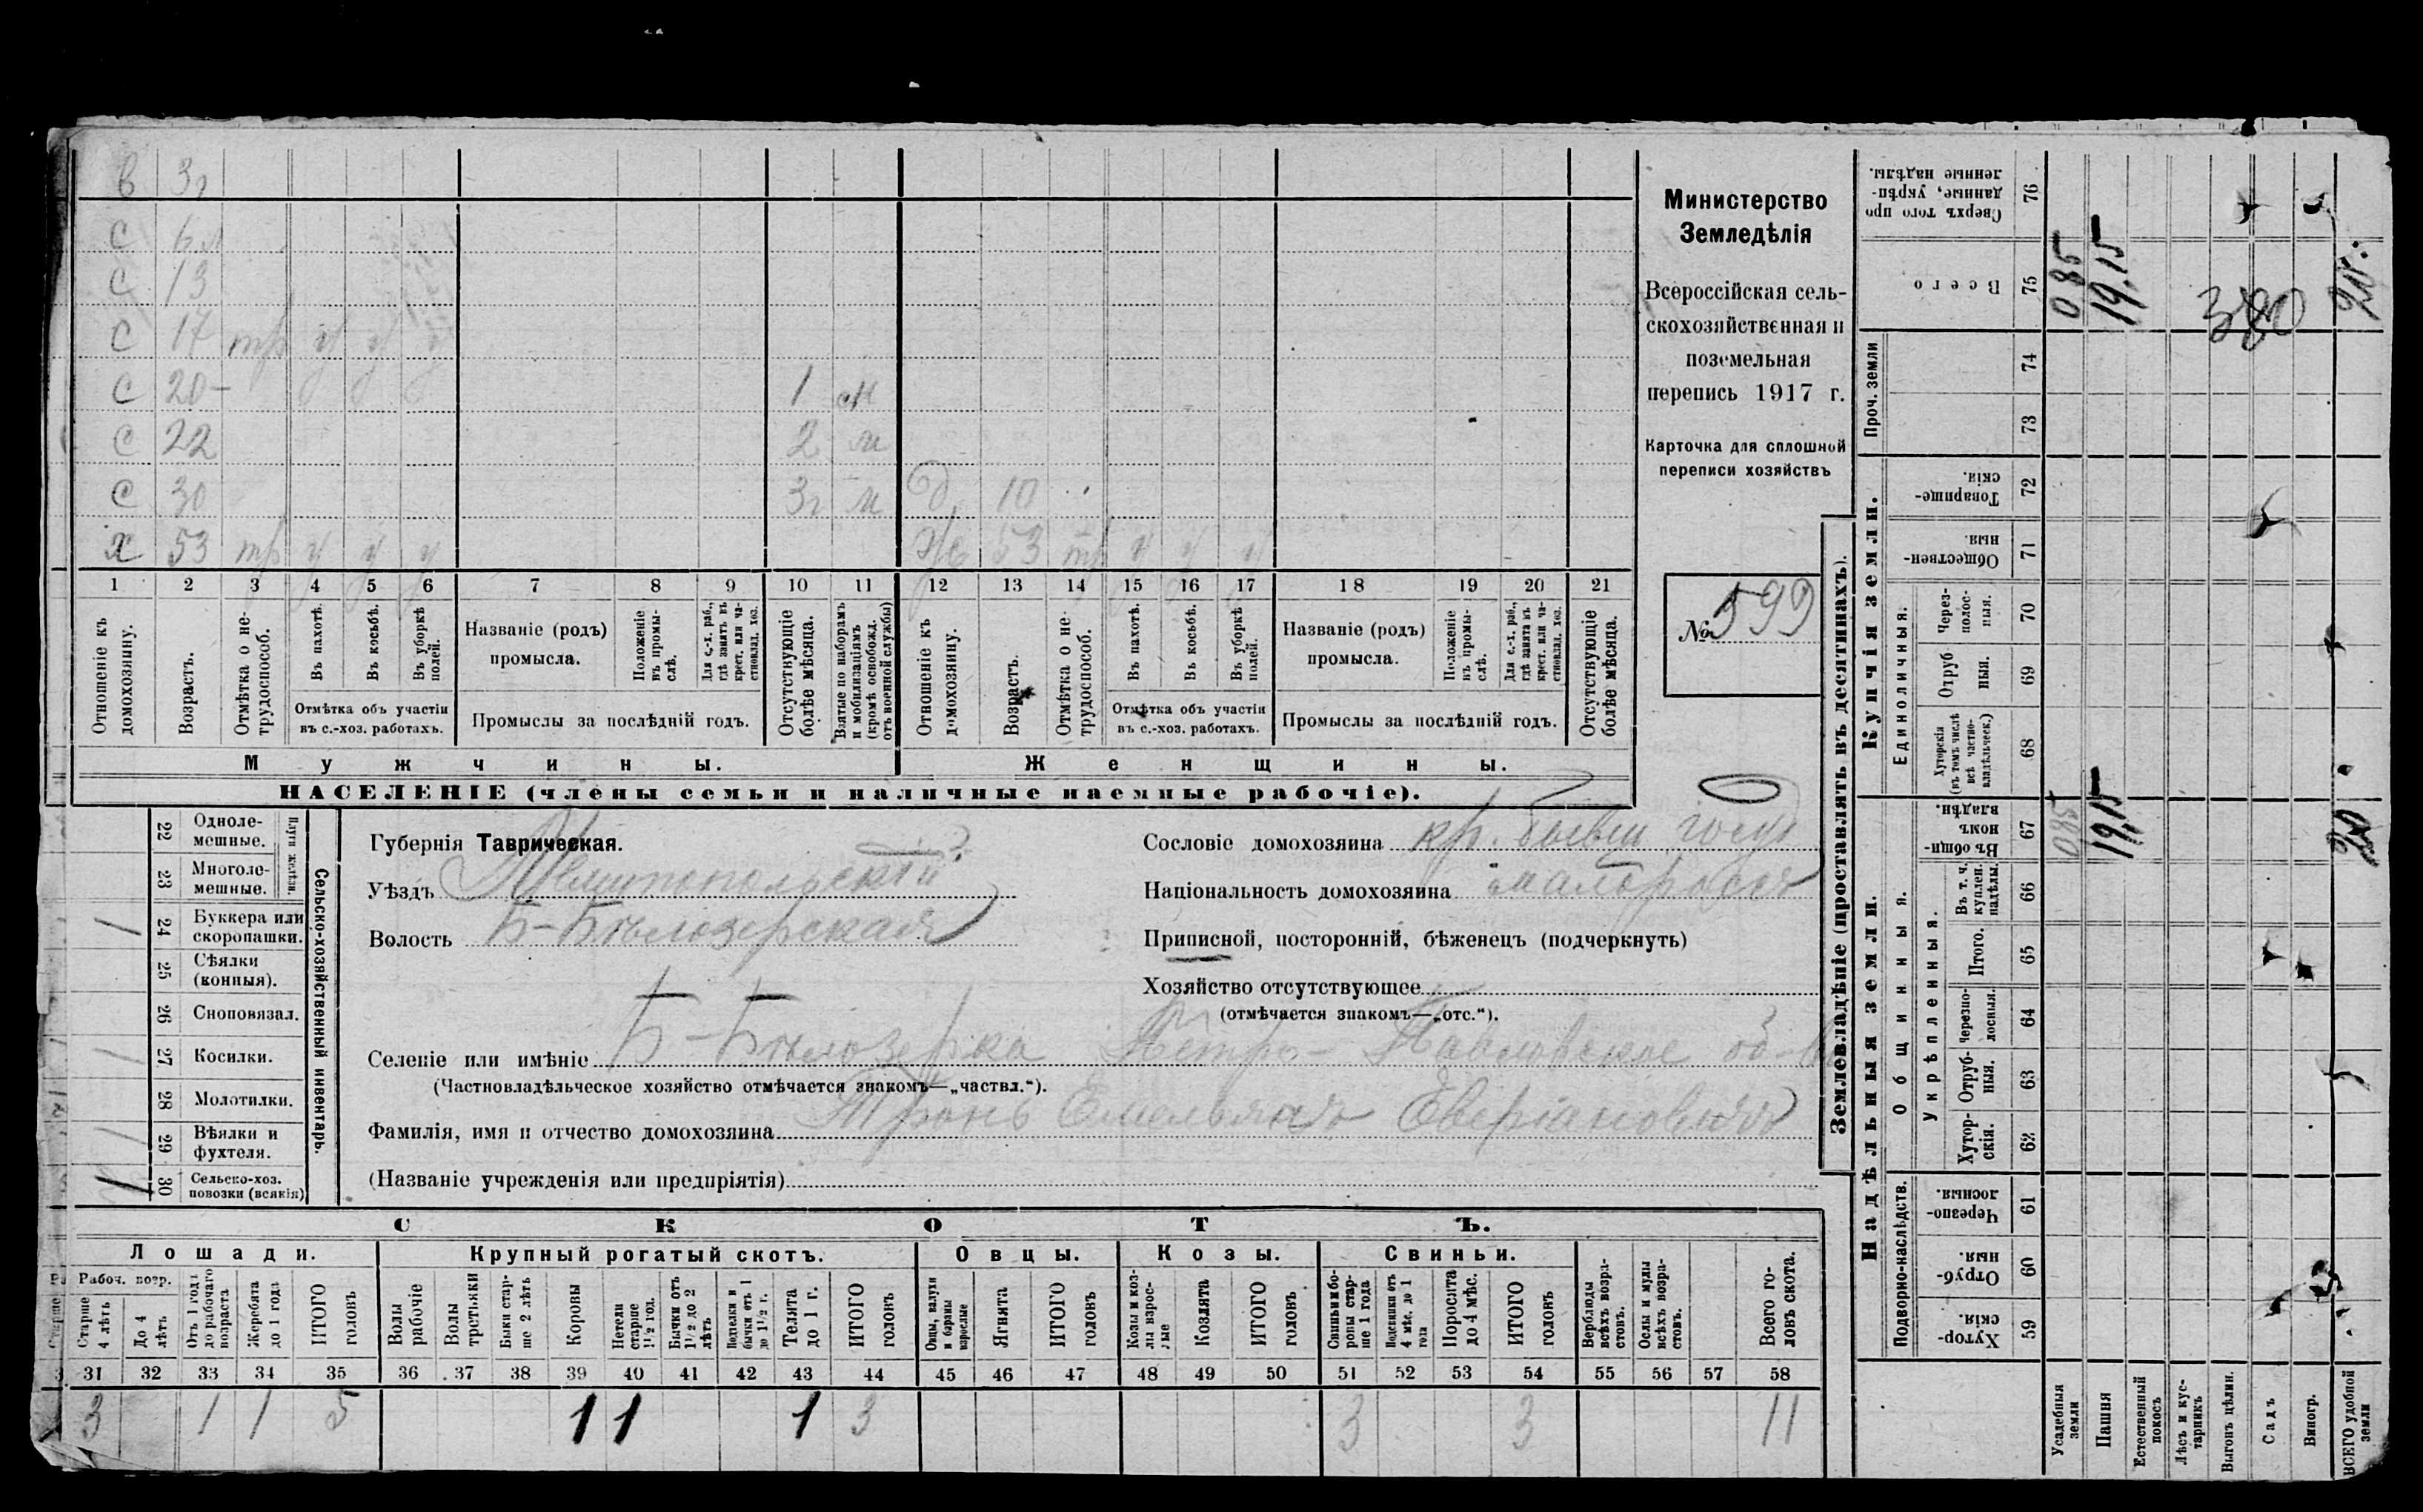 в 3г
с 6 л
с 13
с 17 тр у у у
с 20 - у у у 1 м
с 22 2 м
с 30 3г м д 10
х 53 тр у у у ж 53 тр у у у
1 2 3 4 5 6 7 8 9 10 11 12 13 14 15 16 17 18 19 20 21
Отношеніе къ домохозяину.
Возрастъ.
Отмѣтка о не-трудоспособ.
Въ пахотѣ.
Въ косьбѣ.
Въ уборкѣ полей.
Отмѣтка объ участіи въ с.-хоз. работахъ.
Названіе (родъ) промысла.
Положеніе въ промы-слѣ.
Для с.-х. раб., гдѣ занятъ въ крест. или ча-стновлад. хоз.
Промыслы за послѣдній годъ.
Отсутствующіе болѣе мѣсяца.
Взятые по наборамъ и мобилизаціямъ (кромѣ освобожд. отъ военной службы)
Отношеніе къ домохозяину.
Возрастъ.
Отмѣтка о не-трудоспособ.
Въ пахотѣ.
Въ косьбѣ.
Въ уборкѣ полей.
Отмѣтка объ участіи въ с.-хоз. работахъ.
Названіе (родъ) промысла.
Положеніе въ промы-слѣ.
Для с.-х. раб., гдѣ занята въ крест. или ча-стновлад. хоз.
Промыслы за послѣдній годъ.
Отсутствующіе болѣе мѣсяца.
Мужчины.
Женщины.
НАСЕЛЕНІЕ (члены семьи и наличные наемные рабочіе).
Министерство
Земледѣлія
Всероссійская сель-
скохозяйственная и
поземельная
перепись 1917 г.
Карточка для сплошной
переписи хозяйствъ
№ 599
Сельско-хозяйственный инвентарь.
Плуги желѣзн.
22 Одноле-мешные.
23 Многоле-мешные.
24 Буккера или скоропашки. 1
25 Сѣялки (конныя).
26 Сноповязал.
27 Косилки. 1
28 Молотилки.
29 Вѣялки и фухтеля. 1
30 Сельско-хоз. повозки (всякія) 1
Губернія Таврическая.
Уѣздъ Мелитопольскій
Волость Б-Бѣлозерская
Сословіе домохозяина кр. бывш госуд
Національность домохозяина малороссъ
Приписной, посторонній, бѣженецъ (подчеркнуть)
Хозяйство отсутствующее
(отмѣчается знакомъ—„отс.“).
Селеніе или имѣніе Б-Бѣлозерка Петро-Павловское об-во
(Частновладѣльческое хозяйство отмѣчается знакомъ—„частвл.“).
Фамилія, имя и отчество домохозяина Тронь Емельянъ Еверіановичъ
(Названіе учрежденія или предпріятія)
СКОТЪ.
Лошади.
Крупный рогатый скотъ.
Овцы.
Козы.
Свиньи.
Рабоч. возр.
Старше 4 лѣтъ
До 4 лѣтъ
Отъ 1 года до рабочаго возраста
Жеребята до 1 года
ИТОГО головъ
Волы рабочіе
Волы третьяки
Быки стар-ше 2 лѣтъ
Коровы
Нетели старше 1½ год.
Бычки отъ 1½ до 2 лѣтъ
Нетелки и бычки отъ 1 до 1½ г.
Телята до 1 г.
ИТОГО головъ
Овцы, валухи и бараны взрослые
Ягнята
ИТОГО головъ
Козы и коз-лы взрос-лые
Козлята
ИТОГО головъ
Свиньи и бо-ровы стар-ше 1 года
Подсвинки отъ 4 мѣс. до 1 года
Поросята до 4 мѣс.
ИТОГО головъ
Верблюды всѣхъ возра-стовъ.
Ослы и мулы всѣхъ возра-стовъ.
Всего го-ловъ скота.
31 32 33 34 35 36 37 38 39 40 41 42 43 44 45 46 47 48 49 50 51 52 53 54 55 56 57 58
3 1 1 5 1 1 1 3 3 3 11
Землевладѣніе (проставлять въ десятинахъ).
Купчія земли.
Надѣльныя земли.
Сверхъ того про-данные, укрѣп-ленные надѣлы. 76
Всего 75 0 85 19.15 380 20
Проч. земли
74
73
Товарище-скія. 72
Обществен-ныя. 71
Единоличныя.
Через-полос-ныя. 70
Отруб-ныя. 69
Хуторскія (въ томъ числѣ всѣ частно-владѣльческ.) 68
Общинныя.
Въ общи-номъ владѣн. 67 085 19,15 20
Укрѣпленныя.
Въ т. ч. куплен. надѣлы. 66
Итого. 65
Черезпо-лосныя. 64
Отруб-ныя. 63
Хутор-скія. 62
Подворно-наслѣдств.
Черезпо-лосныя. 61
Отруб-ныя. 60
Хутор-скія. 59
Усадебныя земли
Пашня
Естественный покосъ
Лѣсъ и кус-тарникъ
Выгонъ цѣлин.
Садъ
Виногр.
ВСЕГО удобной земли